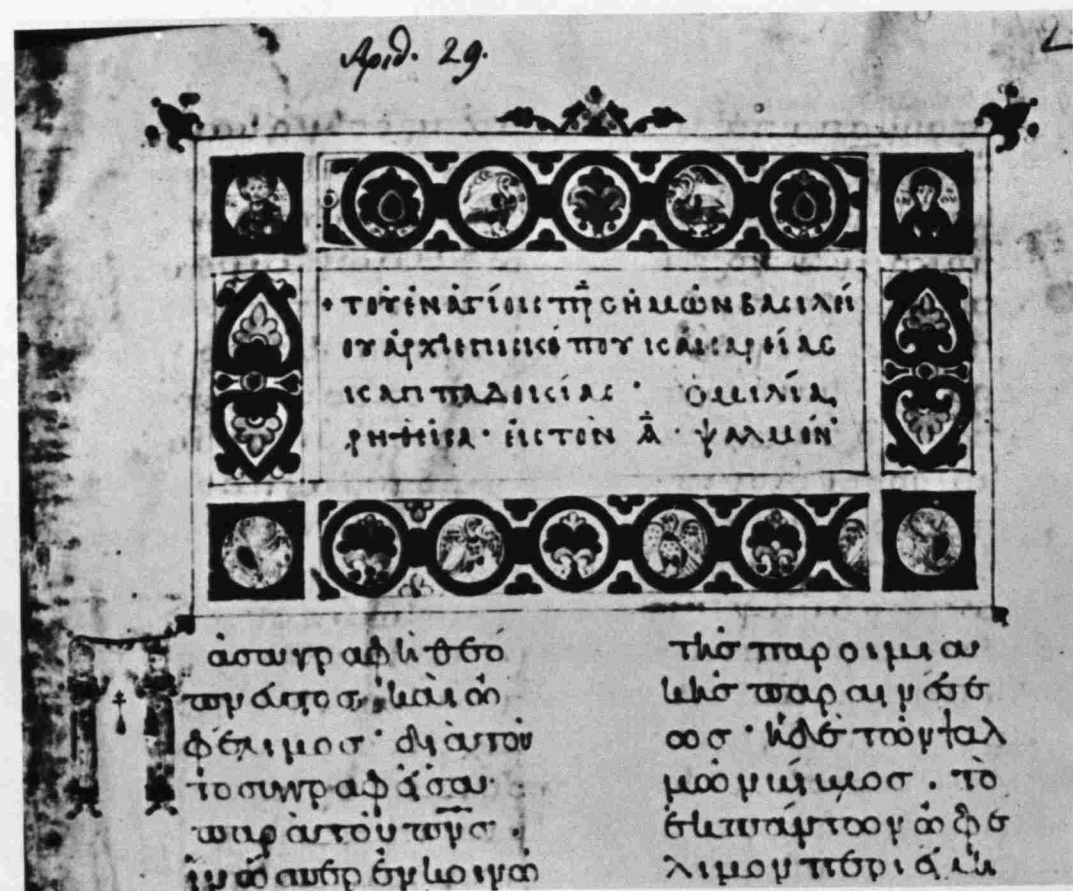 Αριθ. 29.
2
+ ΤΟΥ ΕΝ ΑΓΙΟΙΣ ΠΡ̅Σ ΗΜΩΝ ΒΑΣΙΛΕΙ
ΟΥ ἈΡΧΙΕΠΙΣΚΌΠΟΥ ΚΑΙΣΑΡΕΊΑΣ
ΚΑΠΠΑΔΟΚΊΑΣ · ΟΜΙΛΊΑ
ΡΗΘΕΙΣΑ · ΕΙΣ ΤΟΝ Α̅ · ΨΑΛΜΟΝ
Πᾶσα γραφὴ θεό
πνευστος καὶ ὠ
φέλιμος · διὰ τοῦ
το συγγραφεῖσα
παρὰ τοῦ πν̅ς ·
ἵν' ὥσπερ ἐν κοινῶ
τῆς παροιμίας
τῆς παραινέσε
ως · ἡ δὲ τῶν ψαλ
μῶν βίβλος · τὸ
ἐκ πάντων ὠφέ
λιμον περιείλη